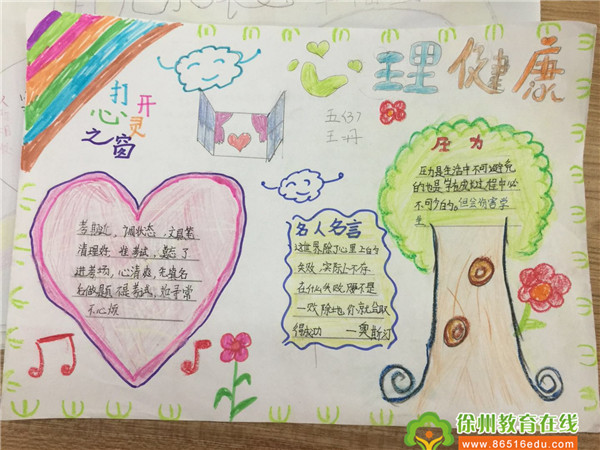 心理健康
打开
心灵
之窗
五(3)
王丹
压力
压力是生活中不可避免
的也是学生成长过程中必
不可少的。但会伤害学
生
考期近，调状态，文具袋
清理好，准考证，莫忘了
进考场，心清爽，先填名
后做题，不是考试，如寻常
不心烦
名人名言
这世界除了心里上的
失败，实际上不存
在什么失败，
一败涂地，你就会取
得成功 —奥斯汀
徐州教育在线
www.86516edu.com